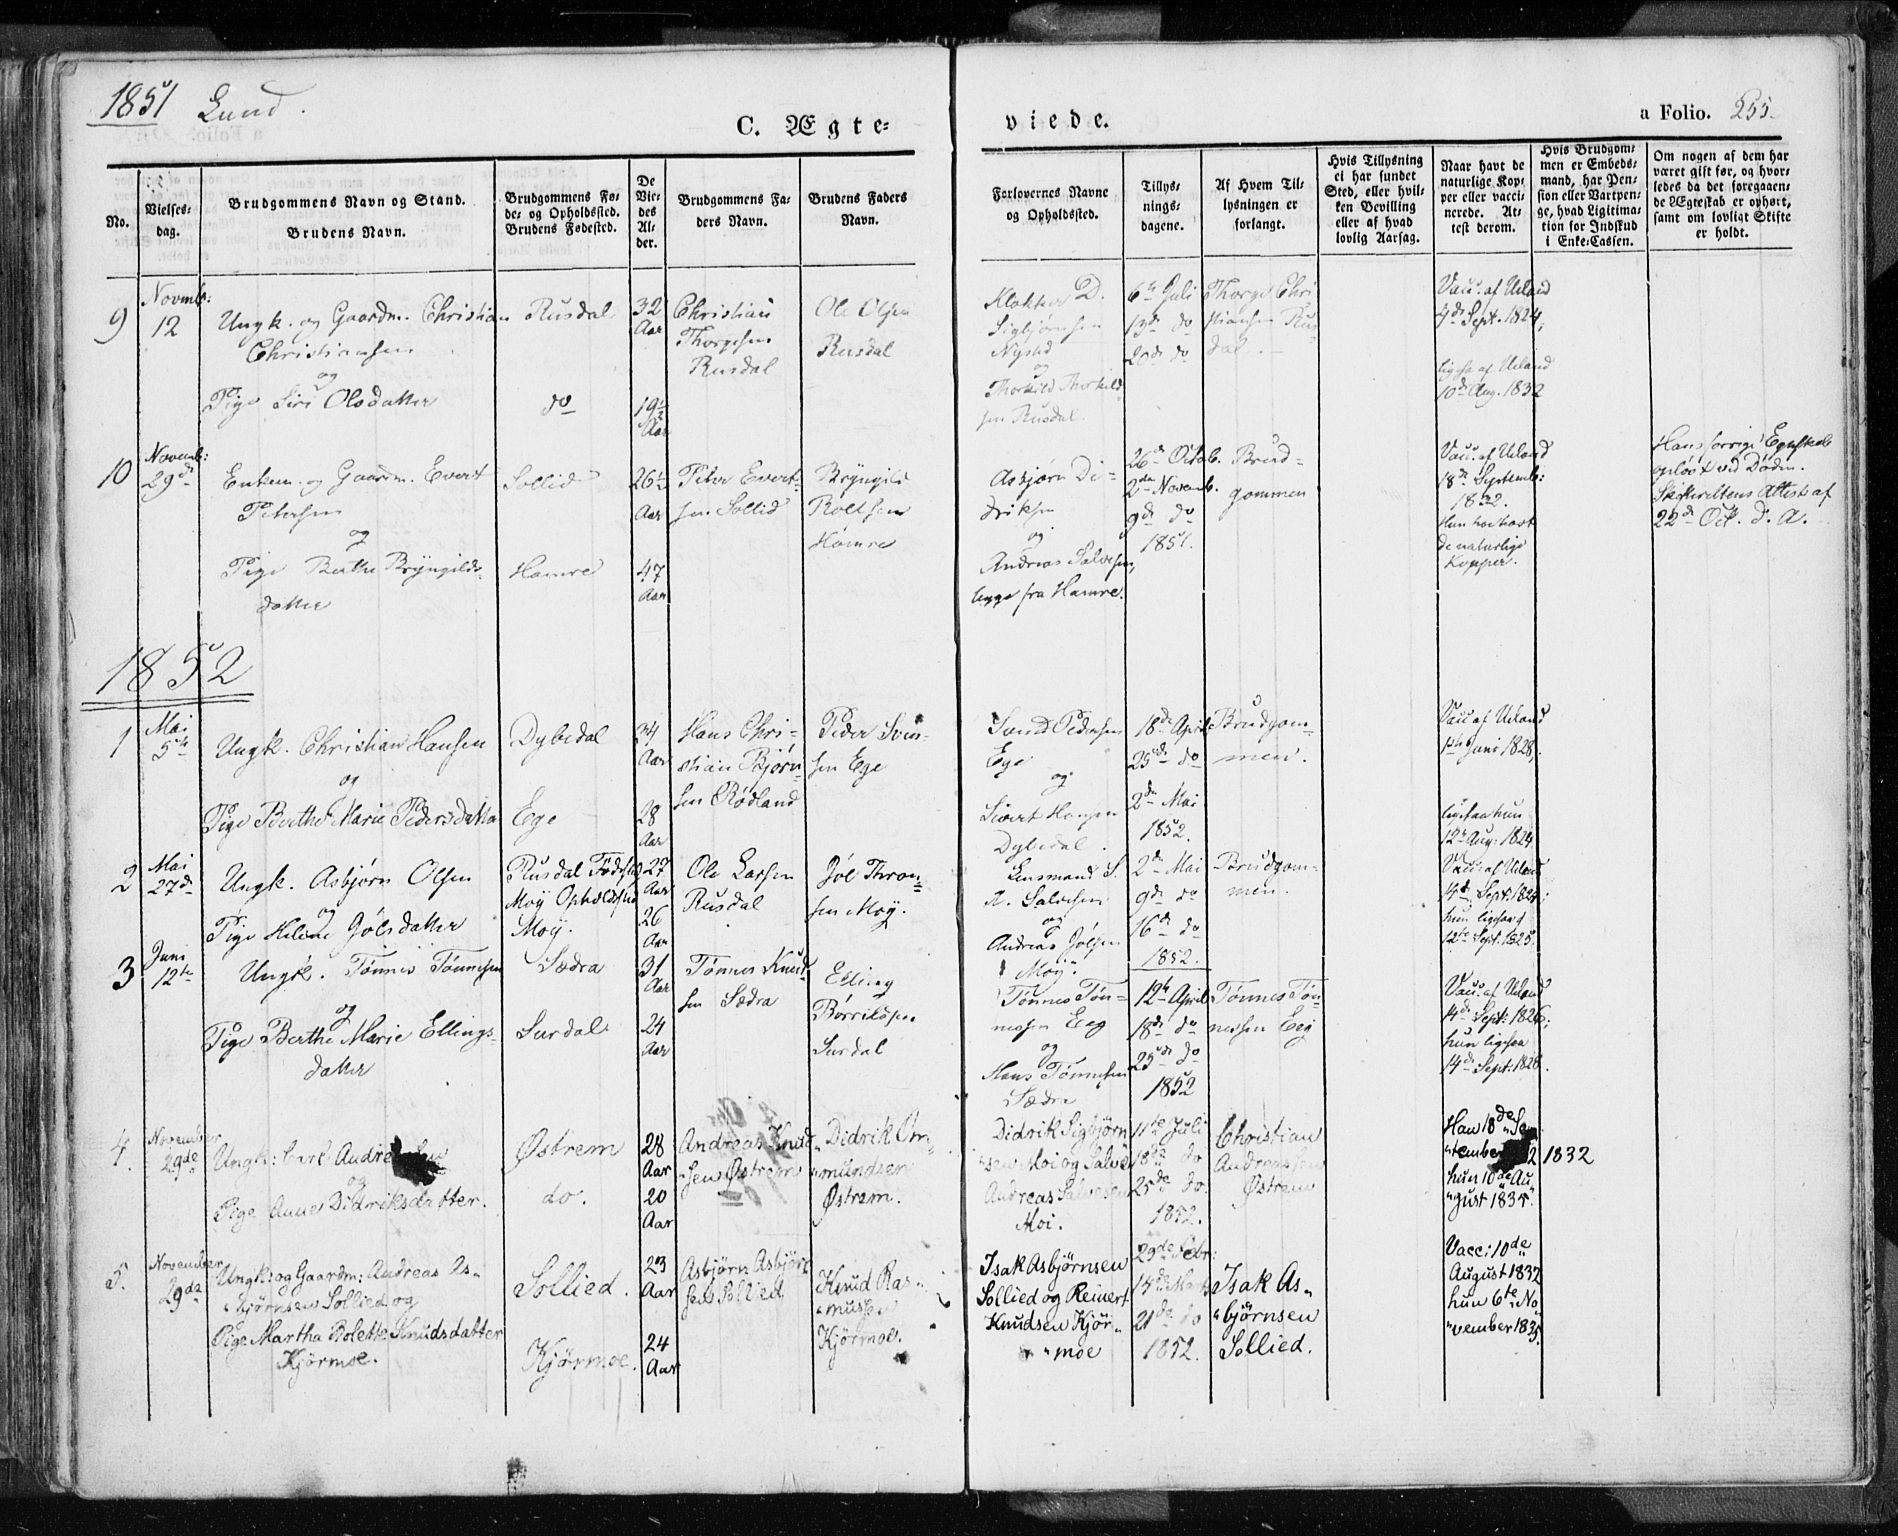 1851 Lund.
C. Ægte=
viede.
a Folio. 255.
No.
Vielses=
dag.
Brudgommens Navn og Stand.
Brudens Navn.
Brudgommens Fø=
de= og Opholdssted.
Brudens Fødested.
De
Vie=
des
Al=
der.
Brudgommens Fa=
ders Navn.
Brudens Faders
Navn.
Forlovernes Navne
og Opholdssted.
Tillys=
nings=
dagene.
Af Hvem Til=
lysningen er
forlangt.
Hvis Tillysning
ei har fundet
Sted, eller hvil=
ken Bevilling
eller af hvad
lovlig Aarsag.
Naar havt de
naturlige Kop=
per eller vacci=
nerede. At=
test derom.
Hvis Brudgom=
men er Embeds=
mand, har Pen=
sion eller Vartpen=
ge, hvad Ligitima=
tion for Indskud
i Enke=Cassen.
Om nogen af dem har
været gift før, og hvor=
ledes da det foregaaen=
de Ægteskab er ophørt,
samt om lovligt Skifte
er holdt.
9
Novmb:
12
Ungk. og Gaardm. Christian
Christiansen
og
Pige Siri Olsdatter
Rusdal
do
32
Aar
19½
Aar
Christian
Thorgesen
Rusdal
Ole Olsen
Rusdal
Klokker D.
Sigbjørnsen
Nysted
og
Thorkild Thorkild
sen Rusdal
6te Juli
13de do
20de do
Thorge Chri
stiansen Rus
dal.
Vacc. af Ueland
4de Sept. 1824;
ligesaa af Ueland
10de Aug. 1832
10
Novemb:
29de
Enkem. og Gaardm. Evert
Petersen
og
Pige Berthe Bryngilds=
datter
Sollid
Hamre
26½
Aar
47
Aar
Peter Evert=
sen Sollid
Bryngild
Roltsen
Hamre
Asbjørn Di=
driksen
og
Andreas Salvesen,
begge fra Hamre.
26de Octob.
2den Novemb.
9de do
1851.
Brud=
gommen
Vacc. af Ueland
18de Septemb:
1832.
Hun har havt
de naturlige
Kopper.
Hans forrige Egteskab
opløst ved Døden.
Skifterettens Attest af
22de Oct. d. A.
1852
1
Mai
5te
Ungk. Christian Hansen
og
Pige Berthe Marie Pedersdatter
Dybedal
Ege
34
Aar
28
Aar
Hans Chri=
stian Bjørn=
sen Rødland
Peder Sven=
sen Ege
Svend Pedersen
Ege
og
Sivert Hansen
Dybedal.
18de April
25de do
2den Mai
1852.
Brudgom=
men.
Vacc. af Ueland
1ste Juni 1828,
ligesaa hun
12te Aug: 1824
2
Mai
27de
Ungk. Asbjørn Olsen
og
Pige Helene Jølsdatter
Rusdal Fødested
Moÿ Opholdssted
Moÿ.
27
Aar
26
Aar
Ole Larsen
Rusdal
Jøl Thron=
sen Moÿ.
Lensmand S.
A. Salvesen
og
Andreas Jølsen
Moÿ.
2de Mai
9de do
16de do
1852.
Brudgom=
men.
Vacc. af Ueland
14de Sept. 1824;
hun ligesaa
12te Sept. 1825.
3
Juni
12te
Ungk. Tønnes Tønnesen
og
Pige Berthe Marie Ellings=
datter
Sædra
Surdal
31
Aar
24
Aar
Tønnes Knut=
sen Sædra
Elling
Børrildsen
Surdal
Tønnes Tøn=
nessen Eeg
og
Hans Tønnesen
Sædra
12te April
18de do
25de do
1852
Tønnes Tøn=
nessen Eeg
Vacc. af Ueland
14de Sept: 1826;
hun ligesaa
14de Sept: 1828.
4.
November
29de
Ungk: Carl Andre sen
og
Pige Anne Didriksdatter.
Østrem
do.
28
Aar
20
Aar
Andreas Knud
"sen Østrem
Didrik Om=
"mundsen
Østrem.
Didrik Sigbjørn
"sen Moi og Salve
Andreas Salvesen
Moi.
11te Juli
18de do
25de do.
1852.
Christian
Andreassen
Østrem
Han 18de Sep
"tember 1832
hun 10de Au"
"gust 1835.
5.
November
29de
Ungk: og Gaardm: Andreas As"
"bjørnsen Sollied og
Pige Martha Bolette Knudsdatter
Kjørmoe.
Sollied.
Kjørmoe.
23
Aar
24
Aar
Asbjørn Asbjørn
sen Sollied
Knud Ras"
"mussen
Kjørmoe.
Isak Asbjørnsen
Sollied og Reinert
Knudsen Kjør"
"moe
29de Febr:
14de Marts
21de do
1852.
Isak As"
"bjørnsen
Sollied.
Vacc: 10de
August 1832
hun 6te No"
"vember 1835.